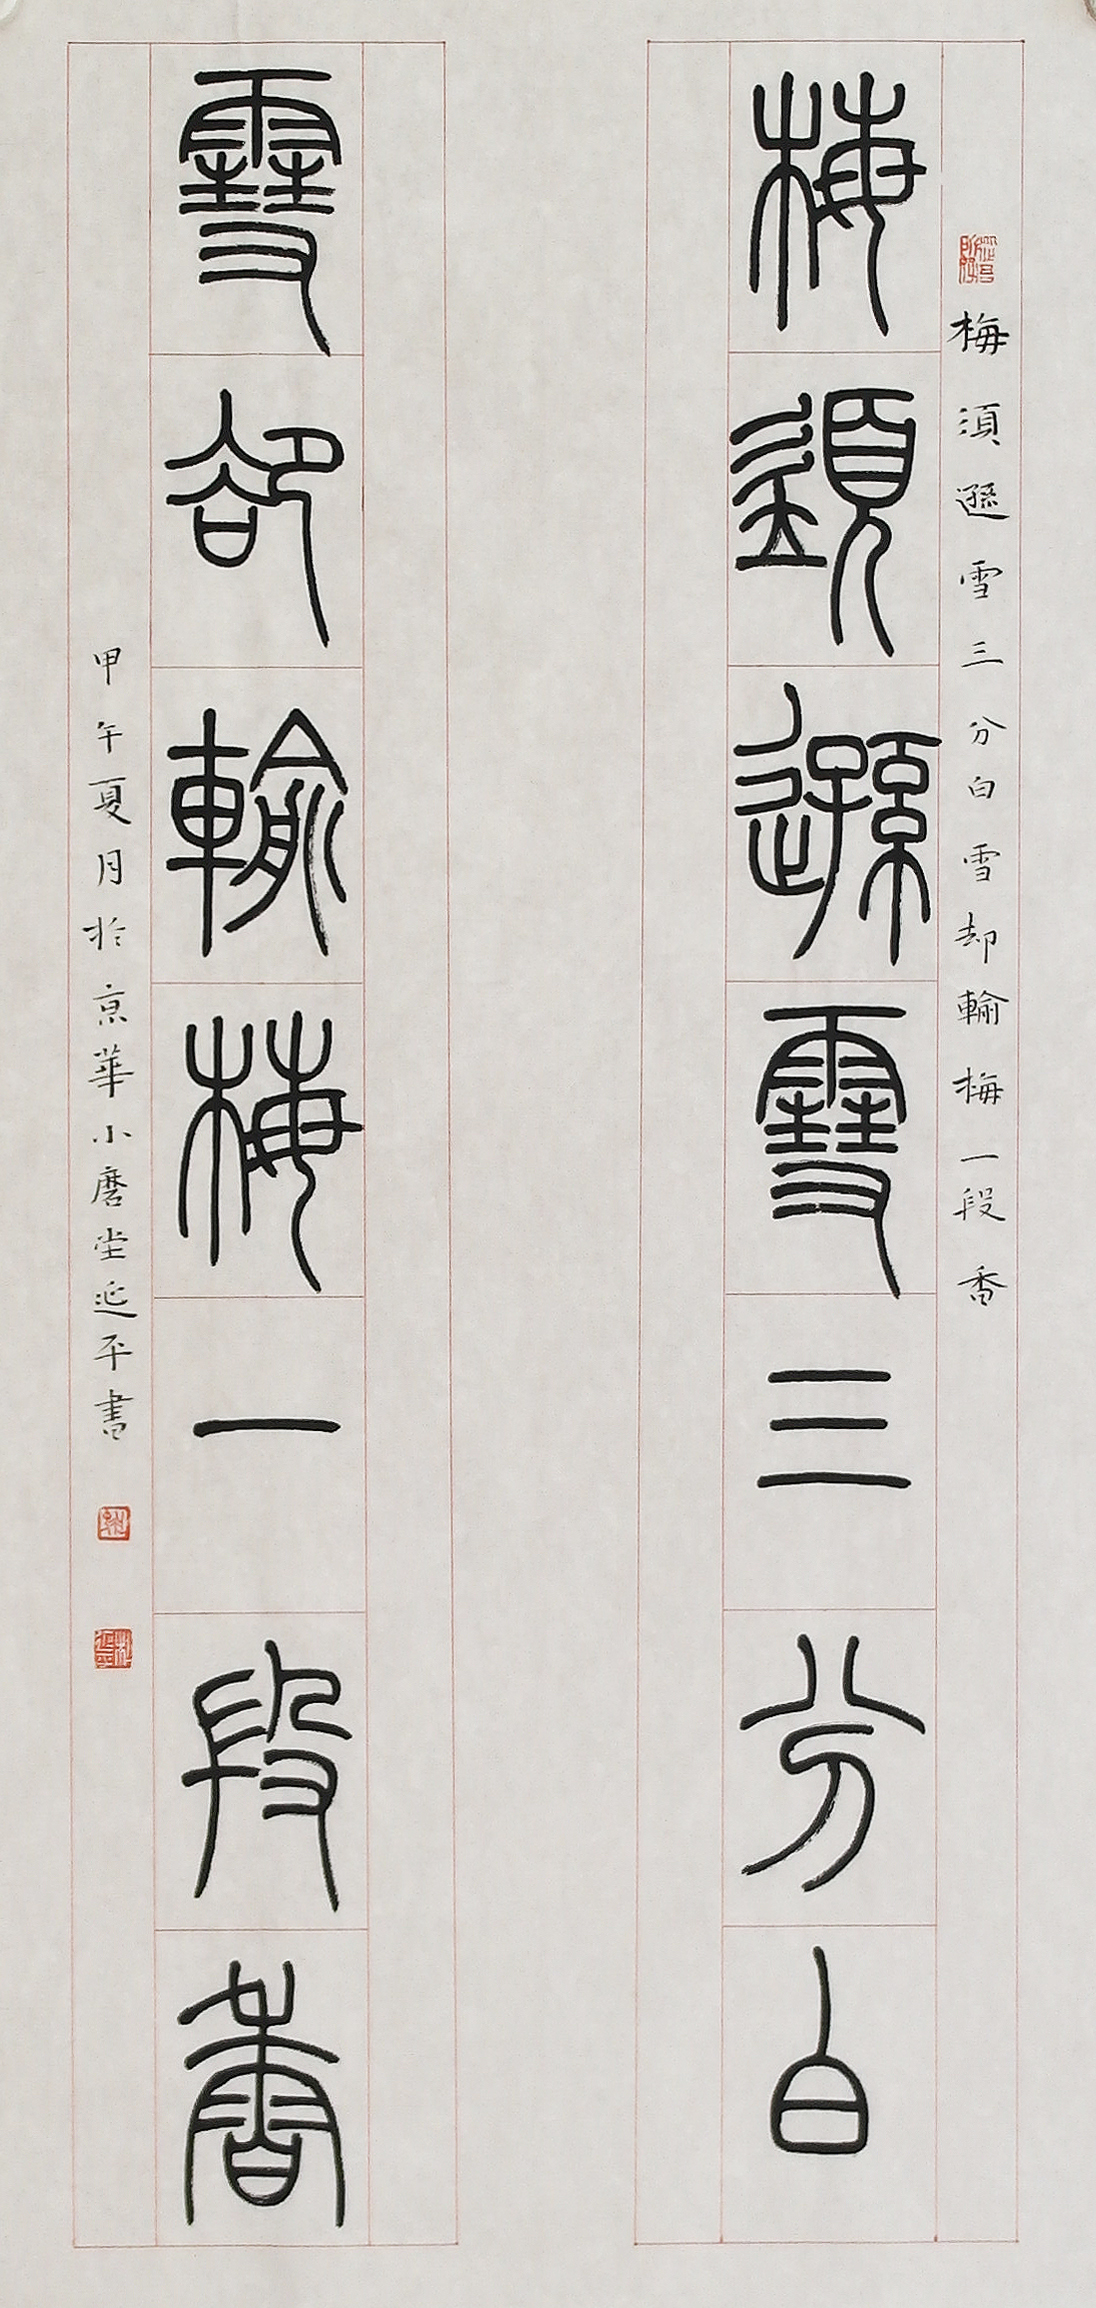 梅須遜雪三分白雪却輸梅一段香
梅須遜雪三分白
雪卻輸梅一段香
甲午夏月於京華小磨堂延平書